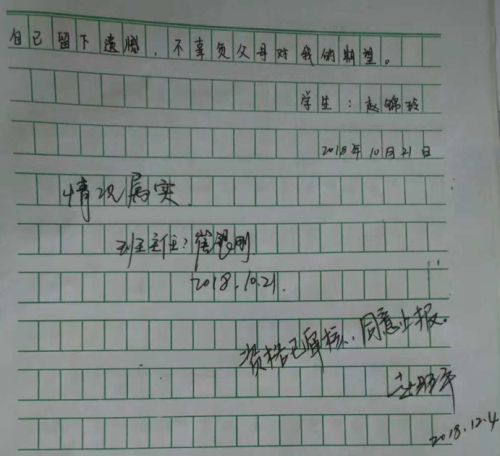 自己留下遗憾,不辜负父母对我的期望。
学生:赵锦玲
2018年10月21日
情况属实
班主任:
2018.10.21.
资格已审核,同意上报。
2018.12.4